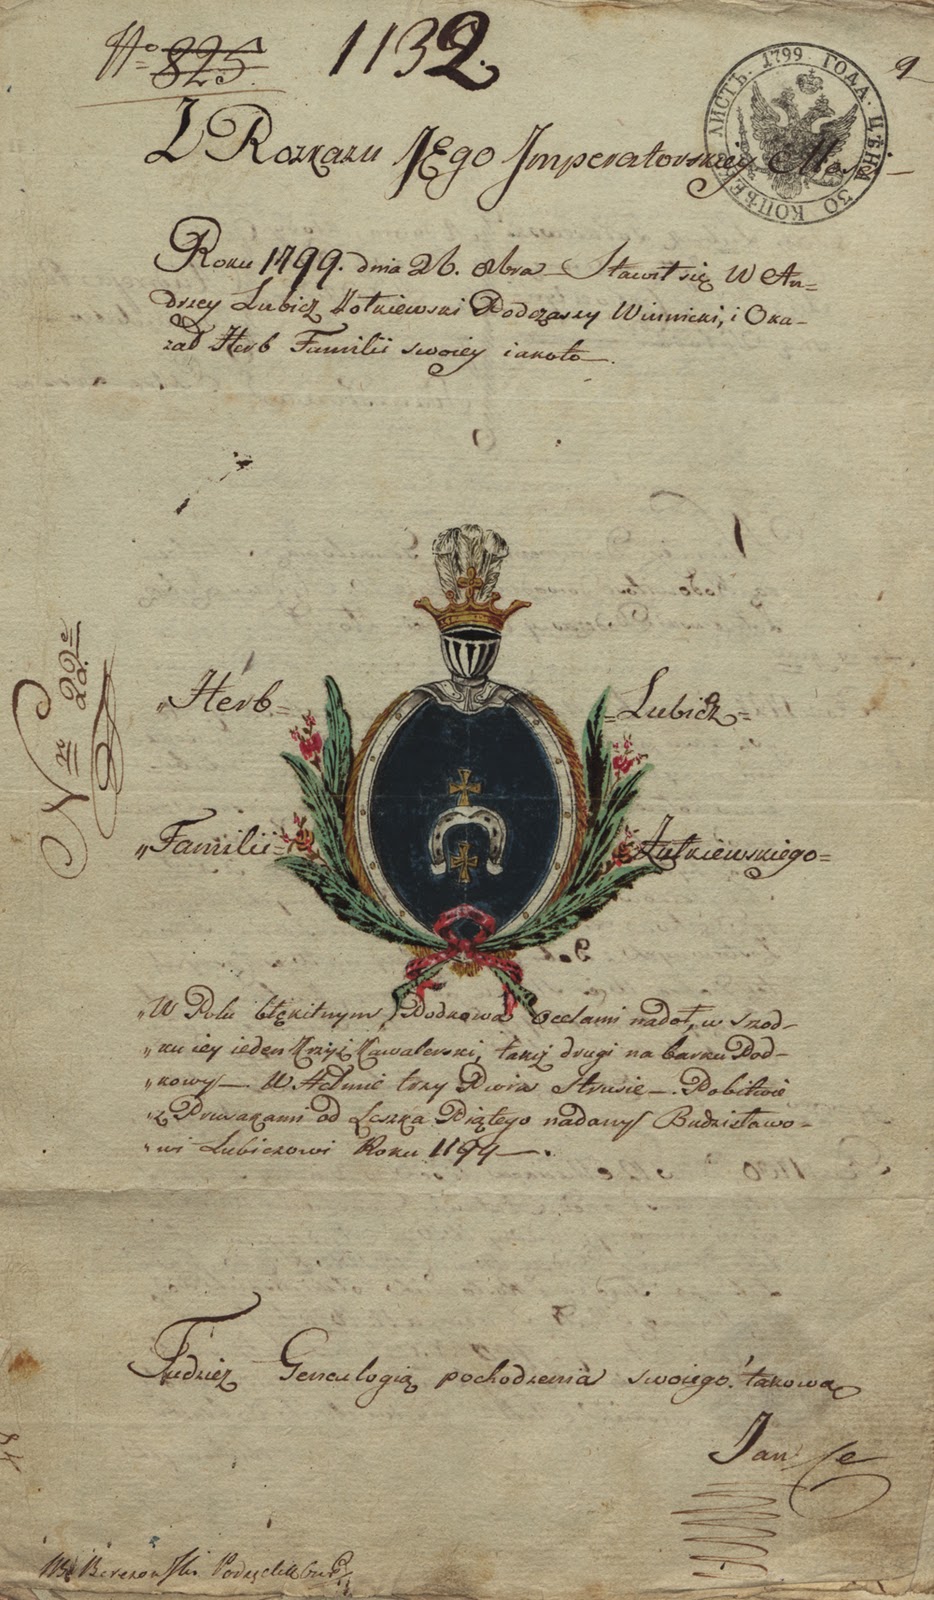 No 825.
1132.
9
ЛИСТЪ. 1799 ГОДА. ЦѢНА 30 КОПѢЕКЪ
Z Rozkazu JEgo Imperatorskiey Mos
Roku 1799. dnia 26. 8bra Stawił się W An=
drzey Lubicz Żółkiewski Podczaszy Winnicki, i Oka=
zał Herb Familii swoiey iakoto.
„Herb= =Lubicz=
„Familii= Żułkiewskiego=
„W Polu błękitnym, Podkowa Ocelami nadoł, w szrod=
„ku iey ieden Krzyż Kawalerski, taki drugi na barku Pod=
„kowy — W Hełmie trzy Piora Strusie — Pobitwie
„z Prusakami od Leszka Piątego nadany Budzisławo=
„wi Lubiczowi Roku 1194 — .
Tudzież Genealogią pochodzenia swoiego takową
Jan
Nr 22